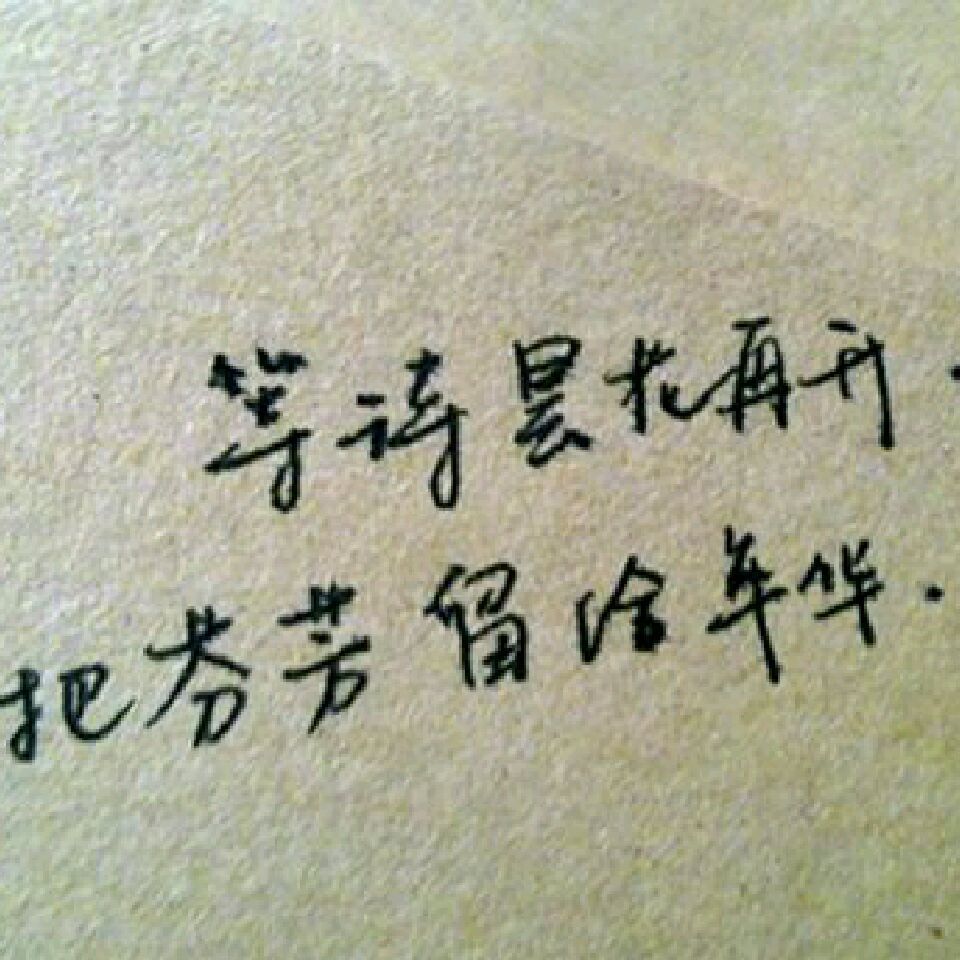 等待昙花再开.
把芬芳留给年华.